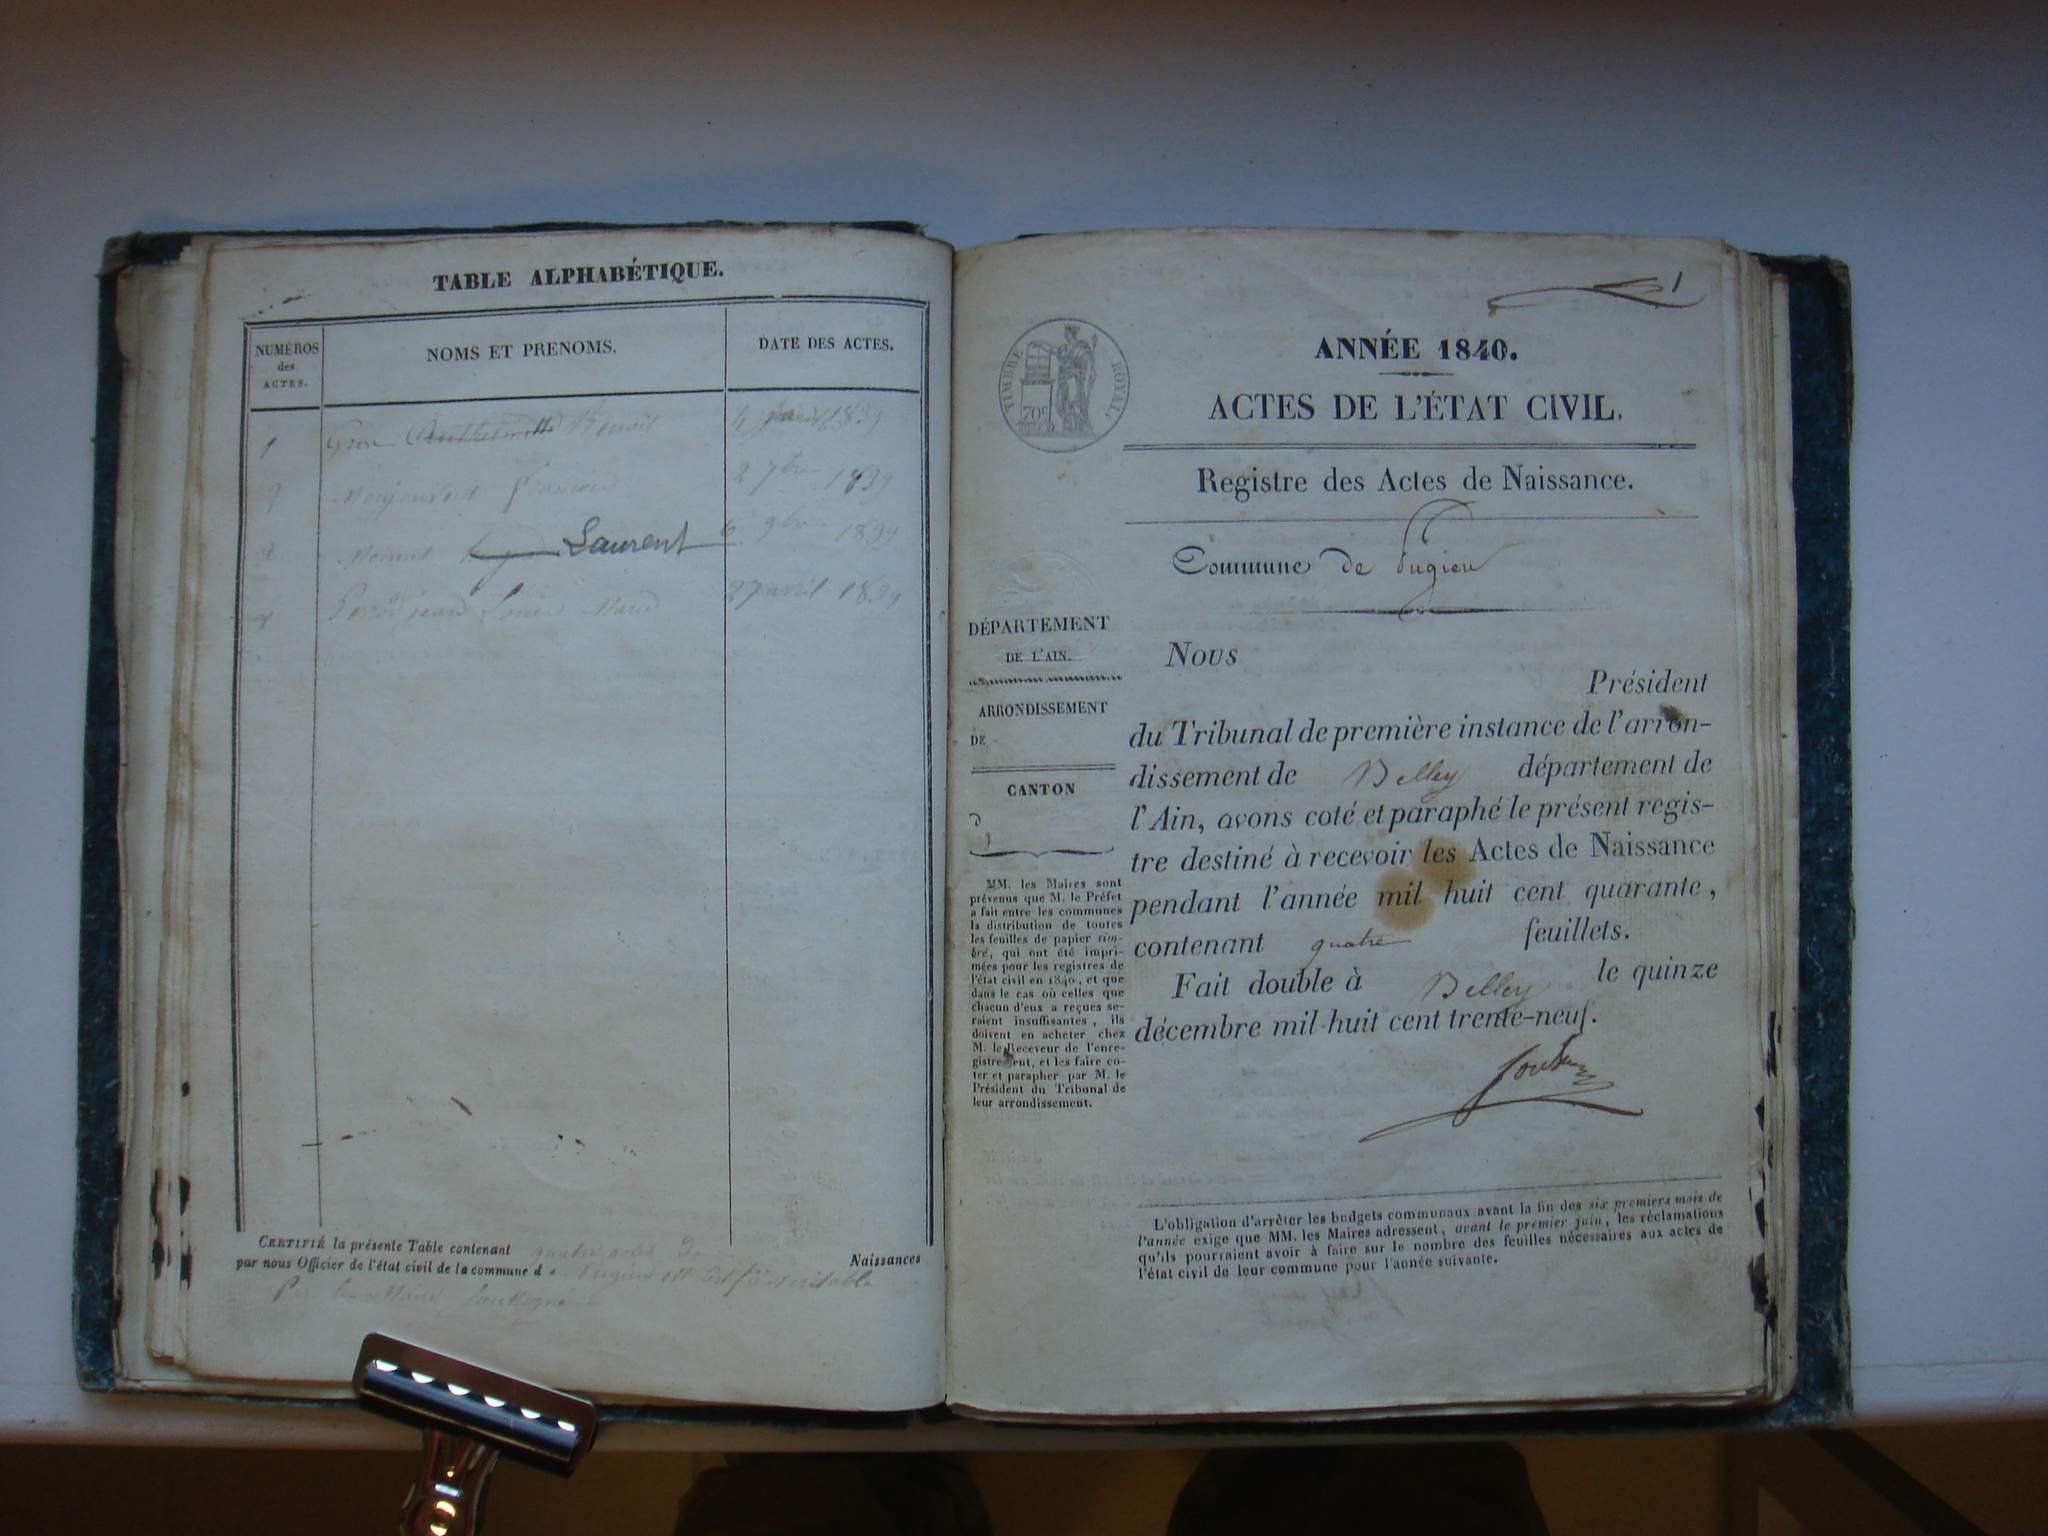 TABLE ALPHABÉTIQUE.
NUMÉROS
des
ACTES.
NOMS ET PRÉNOMS.
DATE DES ACTES.
1839
2 7bre 1839
Laurent 6 9bre 1839
Louis Marie 27 avril 1839
CERTIFIÉ la présente Table contenant quatre Naissances
par nous Officier de l'état civil de la commune d
1
ANNÉE 1840.
ACTES DE L'ÉTAT CIVIL.
TIMBRE ROYAL.
70c
Registre des Actes de Naissance.
Commune de Pugieu
DÉPARTEMENT
DE L'AIN.
ARRONDISSEMENT
DE
CANTON
D
MM. les Maires sont
prévenus que M. le Préfet
a fait entre les communes
la distribution de toutes
les feuilles de papier tim-
bré, qui ont été impri-
mées pour les registres de
l'état civil en 1840, et que
dans le cas où celles que
chacun d'eux a reçues se-
raient insuffisantes, ils
doivent en acheter chez
M. le Receveur de l'enre-
gistrement, et les faire co-
ter et parapher par M. le
Président du Tribunal de
leur arrondissement.
Nous
Président
du Tribunal de première instance de l'arron-
dissement de Belley département de
l'Ain, avons coté et paraphé le présent regis-
tre destiné à recevoir les Actes de Naissance
pendant l'année mil huit cent quarante,
contenant quatre feuillets.
Fait double à Belley le quinze
décembre mil huit cent trente-neuf.
L'obligation d'arrêter les budgets communaux avant la fin des six premiers mois de
l'année exige que MM. les Maires adressent, avant le premier juin, les réclamations
qu'ils pourraient avoir à faire sur le nombre des feuilles nécessaires aux actes de
l'état civil de leur commune pour l'année suivante.